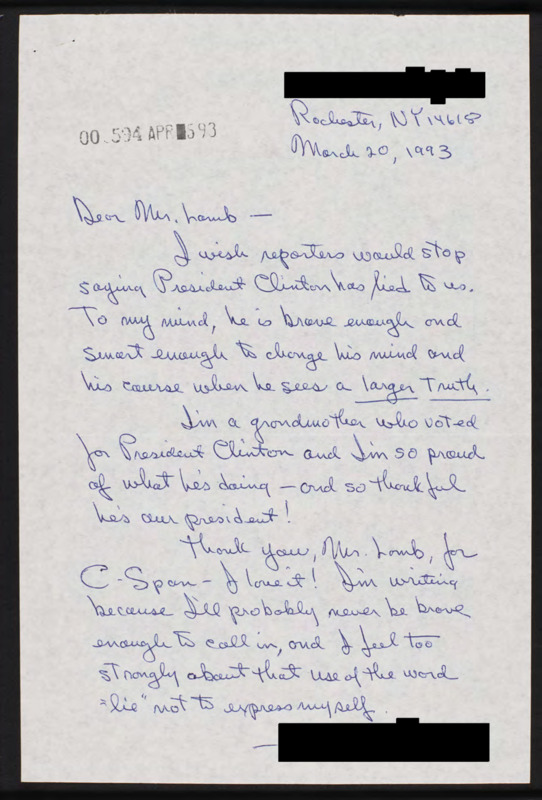 Rochester, NY 14618
00.594 APR 593
March 20, 1993
Dear Mr. Lamb —
I wish reporters would stop
saying President Clinton has lied to us.
To my mind, he is brave enough and
smart enough to change his mind and
his course when he sees a larger Truth.
I'm a grandmother who voted
for President Clinton and I'm so proud
of what he's doing — and so thankful
he's our president!
Thank you, Mr. Lamb, for
C-Span - I love it! I'm writing
because I'll probably never be brave
enough to call in, and I feel too
strongly about that use of the word
"lie" not to express myself.
—